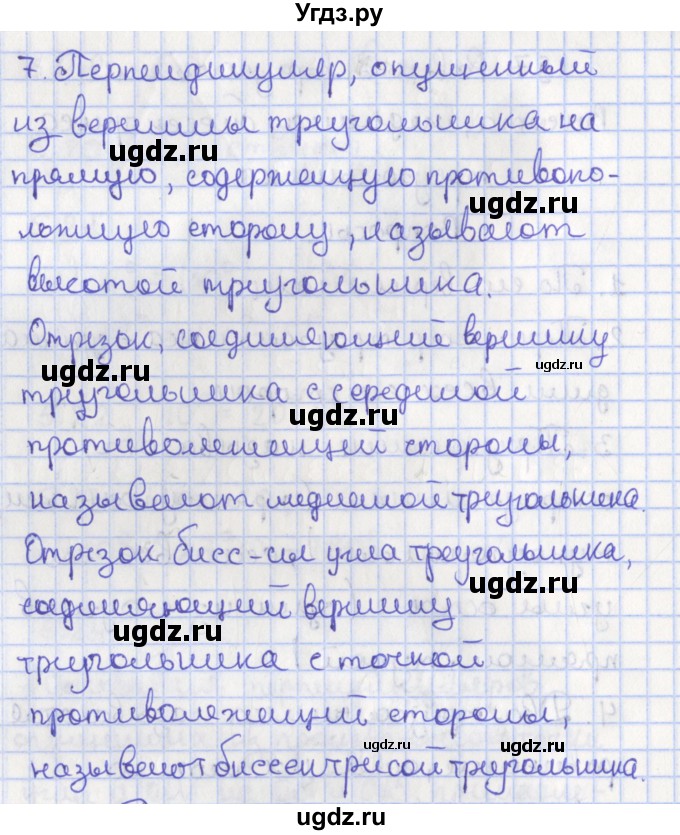 Угдз.ру
7. Перпендикуляр, опущенный
из вершины треугольника на
прямую, содержащую противопо-
ложную сторону, называют
высотой треугольника.
Отрезок, соединяющий вершину
треугольника с серединой
противолежащей стороны,
называют медианой треугольника.
Отрезок бисс-сы угла треугольника,
соединяющий вершину
треугольника с точкой
противолежащей стороны,
называют биссектрисой треугольника.
ugdz.ru
ugdz.ru
ugdz.ru
ugdz.ru
ugdz.ru
ugdz.ru
ugdz.ru
ugdz.ru
ugdz.ru
ugdz.ru